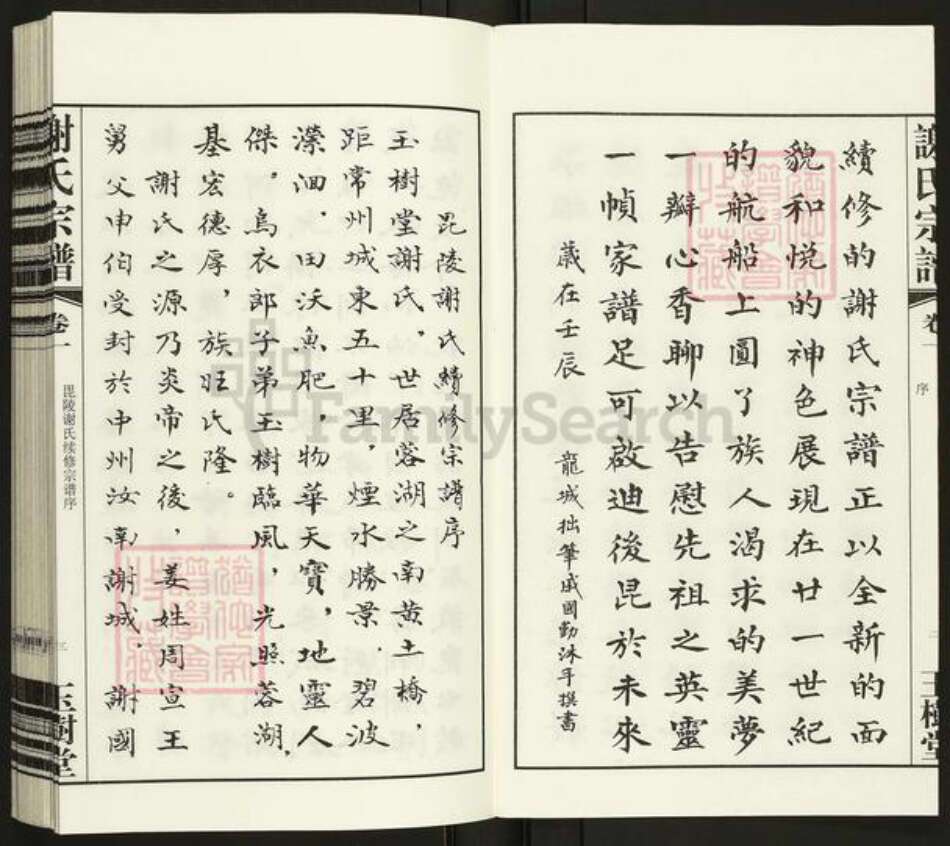 謝氏宗譜
卷一
序
二
玉樹堂
續修的謝氏宗譜正以全新的面
貌和悦的神色展現在廿一世紀
的航船上圓了族人渴求的美夢
一瓣心香聊以告慰先祖之英靈
一幀家譜足可啟迪後昆於未來
歲在壬辰
龍城拙筆戚國勤沐手撰書
毘陵謝氏續修宗譜序
玉樹堂謝氏，世居蓉湖之南黄土橋，
距常州城東五十里，煙水勝景，碧波
濚洄，田沃魚肥，物華天寶，地靈人
傑。烏衣郎子弟玉樹臨風，光照蓉湖，
基宏德厚，族旺氏隆。
謝氏之源乃炎帝之後，姜姓周宣王
舅父申伯受封於申州汝南謝城，謝國
謝氏宗譜
卷一
毘陵谢氏续修宗谱序
三
玉樹堂
FamilySearch